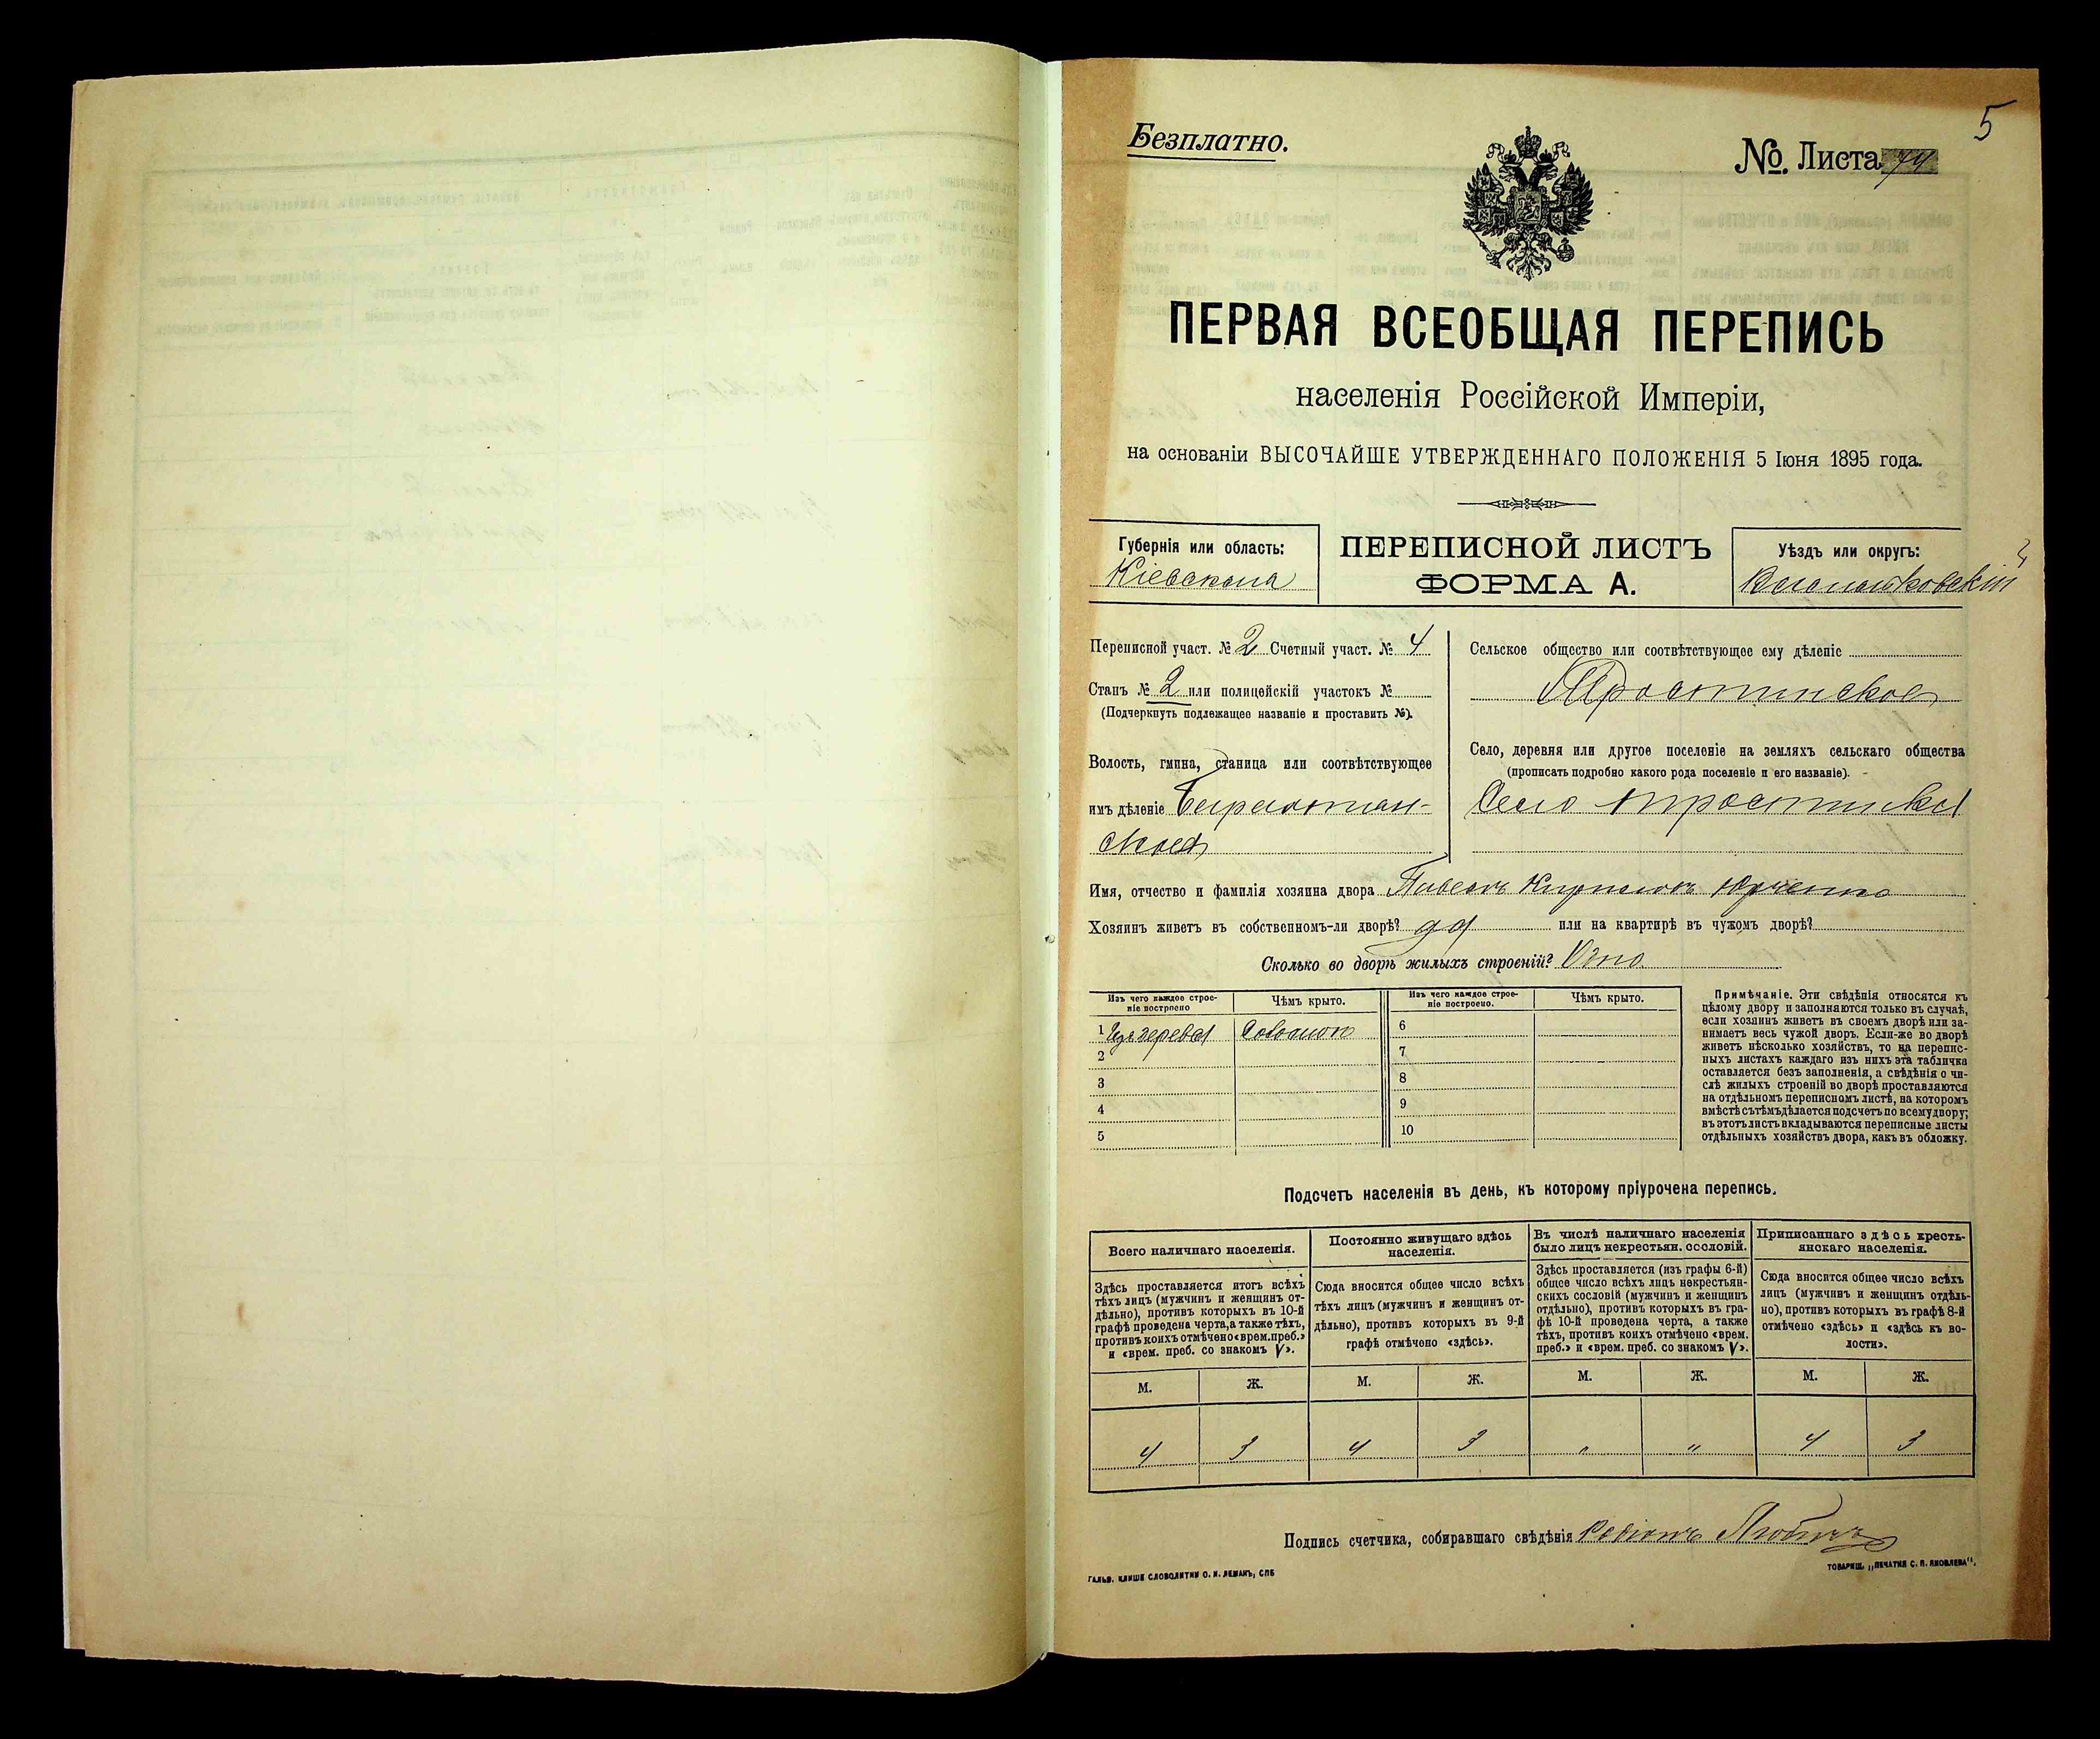 5
Безплатно.
№. Листа 74
ПЕРВАЯ ВСЕОБЩАЯ ПЕРЕПИСЬ
населенія Россійской Имперіи,
на основаніи ВЫСОЧАЙШЕ УТВЕРЖДЕННАГО ПОЛОЖЕНІЯ 5 Іюня 1895 года.
Губернія или область:
Кіевская
ПЕРЕПИСНОЙ ЛИСТЪ
ФОРМА А.
Уѣздъ или округъ:
Васильковскій
Переписной участ. № 2 Счетный участ. № 4
Станъ № 2 или полицейскій участокъ №
(Подчеркнуть подлежащее названіе и проставить №).
Волость, гмина, станица или соотвѣтствующее
имъ дѣленіе
ское
Сельское общество или соотвѣтствующее ему дѣленіе
Тростинское
Село, деревня или другое поселеніе на земляхъ сельскаго общества
(прописать подробно какого рода поселеніе и его названіе).
Село Тростинка
Имя, отчество и фамилія хозяина двора Павелъ Кириловъ Юрченко
Хозяинъ живетъ въ собственномъ-ли дворѣ? да или на квартирѣ въ чужомъ дворѣ?
Сколько во дворѣ жилыхъ строеній? Одно
Изъ чего каждое строе-
ніе построено
Чѣмъ крыто.
Изъ чего каждое строе-
ніе построено.
Чѣмъ крыто.
1 Изъ дерева Соломою
2
3
4
5
6
7
8
9
10
Примѣчаніе. Эти свѣдѣнія относятся къ
цѣлому двору и заполняются только въ случаѣ,
если хозяинъ живетъ въ своемъ дворѣ или за-
нимаетъ весь чужой дворъ. Если-же во дворѣ
живетъ нѣсколько хозяйствъ, то на перепис-
ныхъ листахъ каждаго изъ нихъ эта табличка
оставляется безъ заполненія, а свѣдѣнія о чи-
слѣ жилыхъ строеній во дворѣ проставляются
на отдѣльномъ переписномъ листѣ, на которомъ
вмѣстѣ съ тѣмъ дѣлается подсчетъ по всему двору;
въ этотъ листъ вкладываются переписные листы
отдѣльныхъ хозяйствъ двора, какъ въ обложку.
Подсчетъ населенія въ день, къ которому пріурочена перепись.
Всего наличнаго населенія.
Постоянно живущаго здѣсь
населенія.
Въ числѣ наличнаго населенія
было лицъ некрестьян. сословій.
Приписаннаго здѣсь кресть-
янскаго населенія.
Здѣсь проставляется итогъ всѣхъ
тѣхъ лицъ (мужчинъ и женщинъ от-
дѣльно), противъ которыхъ въ 10-й
графѣ проведена черта, а также тѣхъ,
противъ коихъ отмѣчено «врем. преб.»
и «врем. преб. со знакомъ V».
Сюда вносится общее число всѣхъ
тѣхъ лицъ (мужчинъ и женщинъ от-
дѣльно), противъ которыхъ въ 9-й
графѣ отмѣчено «здѣсь».
Здѣсь проставляется (изъ графы 6-й)
общее число всѣхъ лицъ некрестьян-
скихъ сословій (мужчинъ и женщинъ
отдѣльно), противъ которыхъ въ гра-
фѣ 10-й проведена черта, а также
тѣхъ, противъ коихъ отмѣчено «врем.
преб.» и «врем. преб. со знакомъ V».
Сюда вносится общее число всѣхъ
лицъ (мужчинъ и женщинъ отдѣль-
но), противъ которыхъ въ графѣ 8-й
отмѣчено «здѣсь» и «здѣсь къ во-
лости».
М. Ж. М. Ж. М. Ж. М. Ж.
4 3 4 3 " " 4 3
Подпись счетчика, собиравшаго свѣдѣнія Родіонъ
ГАЛЬВ. КЛИШЕ СЛОВОЛИТНИ О. И. ЛЕМАНЪ, СПБ
ТОВАРИЩ. „ПЕЧАТНЯ С. П. ЯКОВЛЕВА".